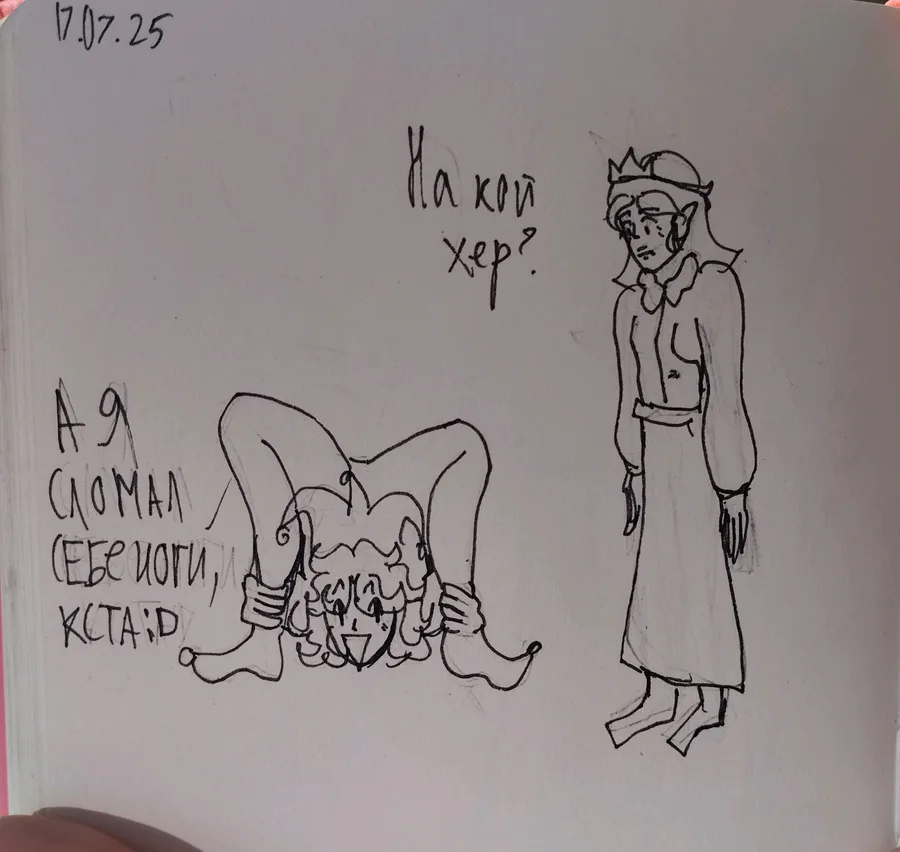 17.07.25
На кой
хер?
А Я
СЛОМАЛ
СЕБЕ НОГИ,
КСТА:D